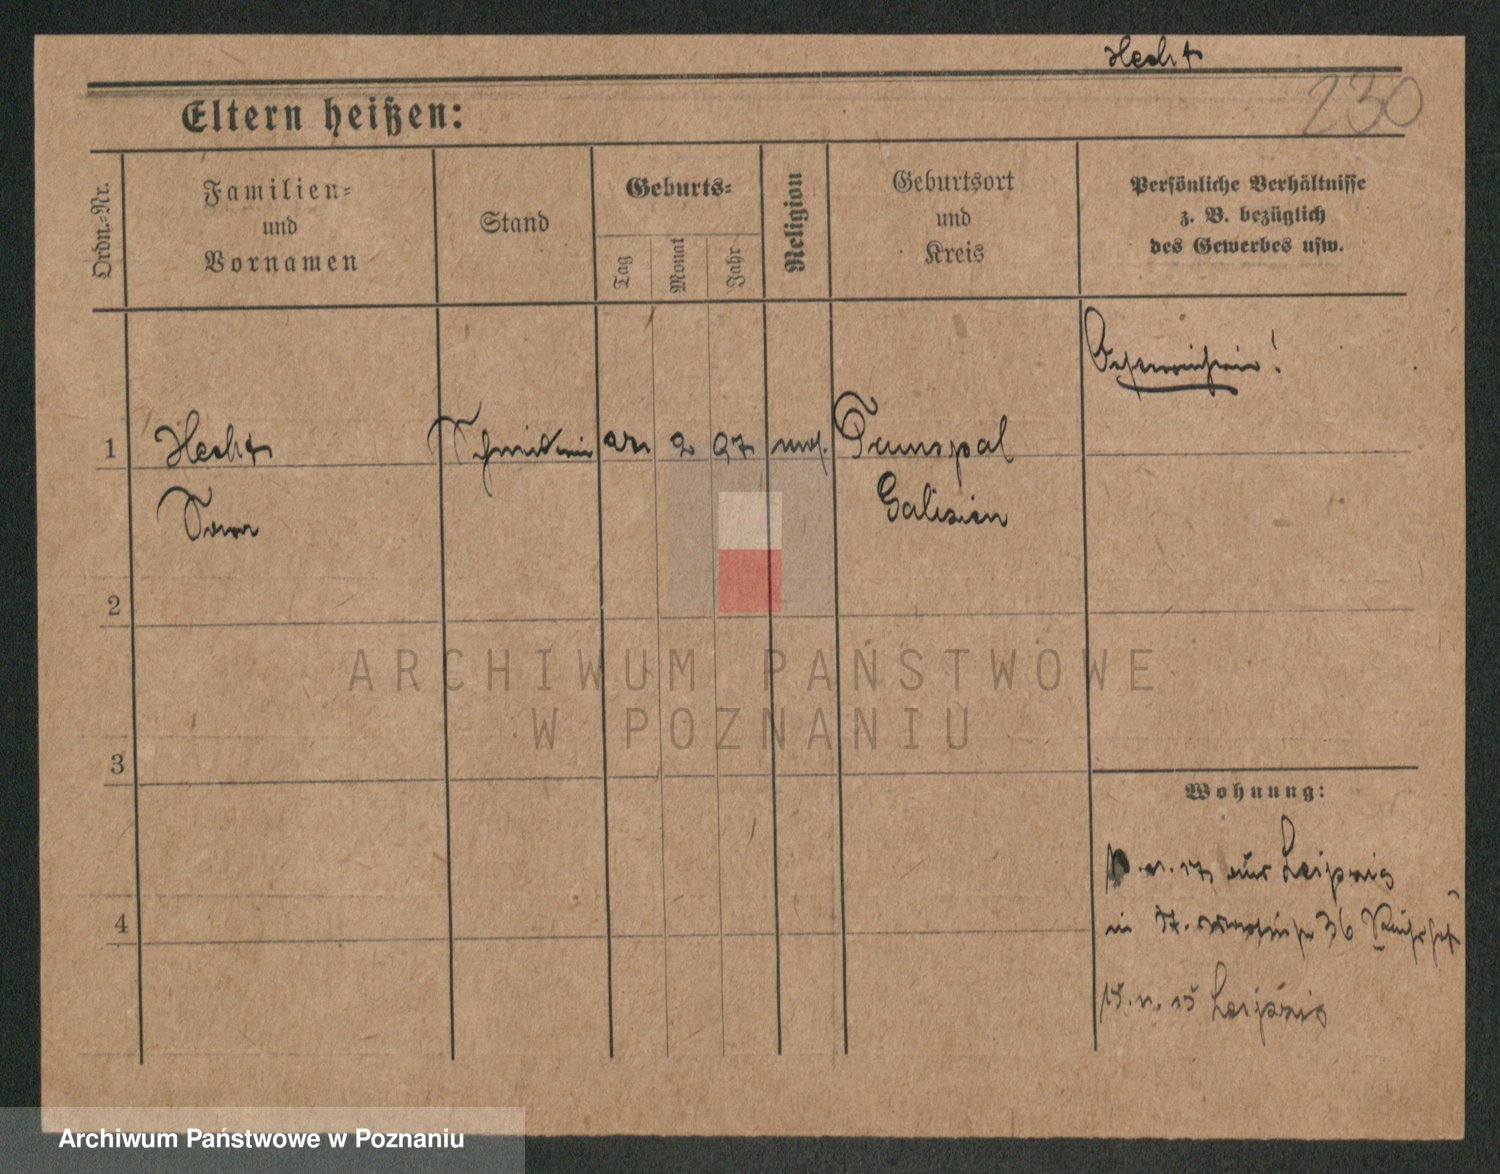 Hecht
230
Eltern heißen:
Ordn.-Nr.
Familien-
und
Vornamen
Stand
Geburts-
Tag
Monat
Jahr
Religion
Geburtsort
und
Kreis
Persönliche Verhältnisse
z. B. bezüglich
des Gewerbes usw.
1
Hecht
2 97 mos.
Galizien
2
3
4
ARCHIWUM PAŃSTWOWE
W POZNANIU
Wohnung:
17 aus Leipzig
in St. Martinstr 36
15 Leipzig
Archiwum Państwowe w Poznaniu